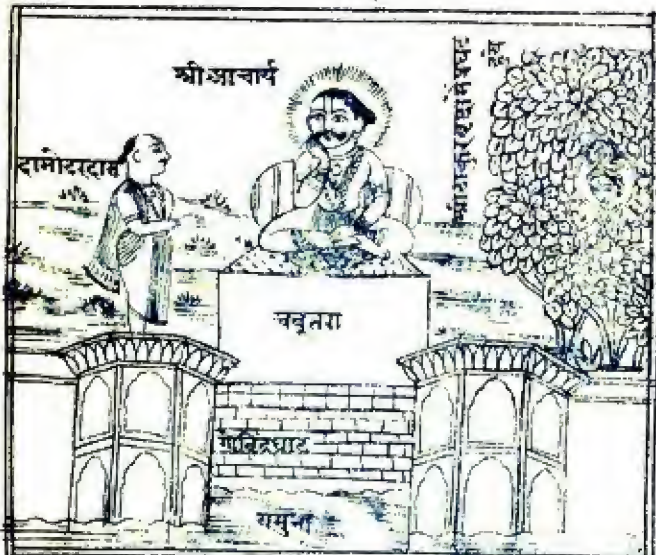 श्रीआचार्य
दामोदरदास
चबुतरा
गोविंदघाट
यमुना